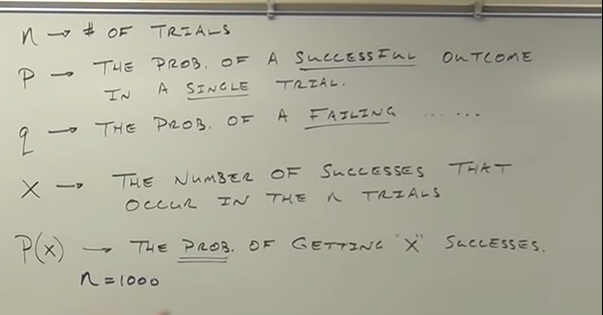 n → # OF TRIALS
P → THE PROB. OF A SUCCESSFUL OUTCOME
IN A SINGLE TRIAL.
q → THE PROB. OF A FAILING ......
X → THE NUMBER OF SUCCESSES THAT
OCCUR IN THE n TRIALS
P(x) → THE PROB. OF GETTING "X" SUCCESSES.
n = 1000